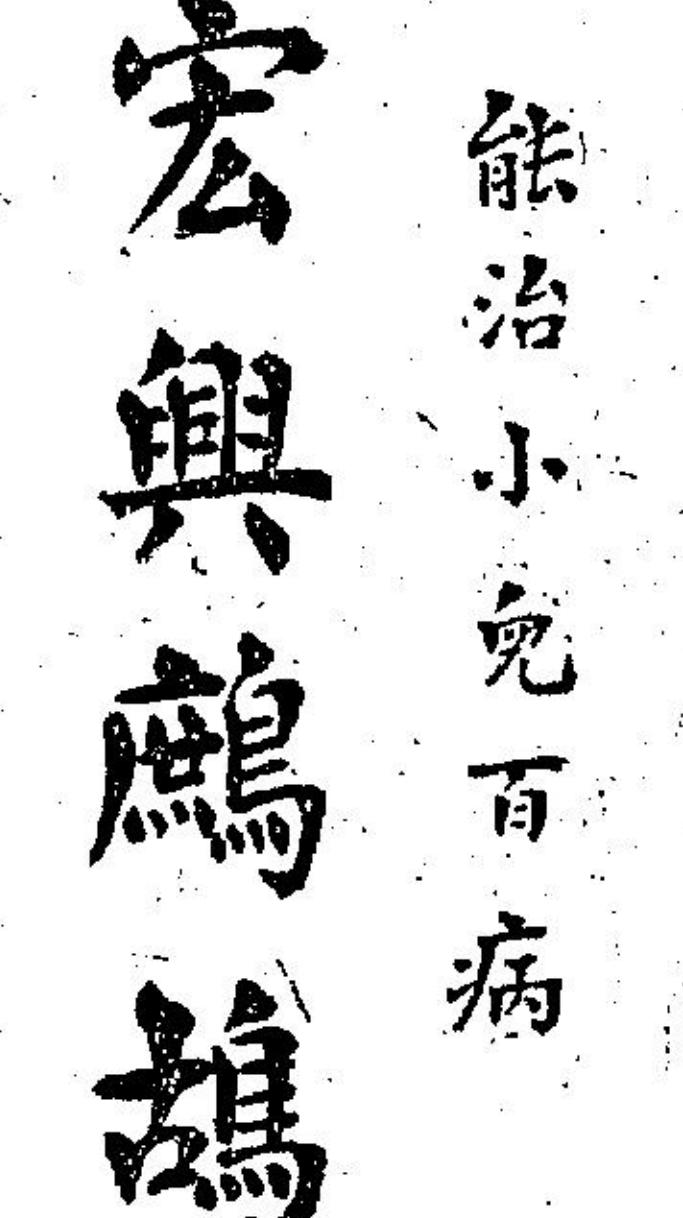 能治小兒百病
宏興鷓鴣